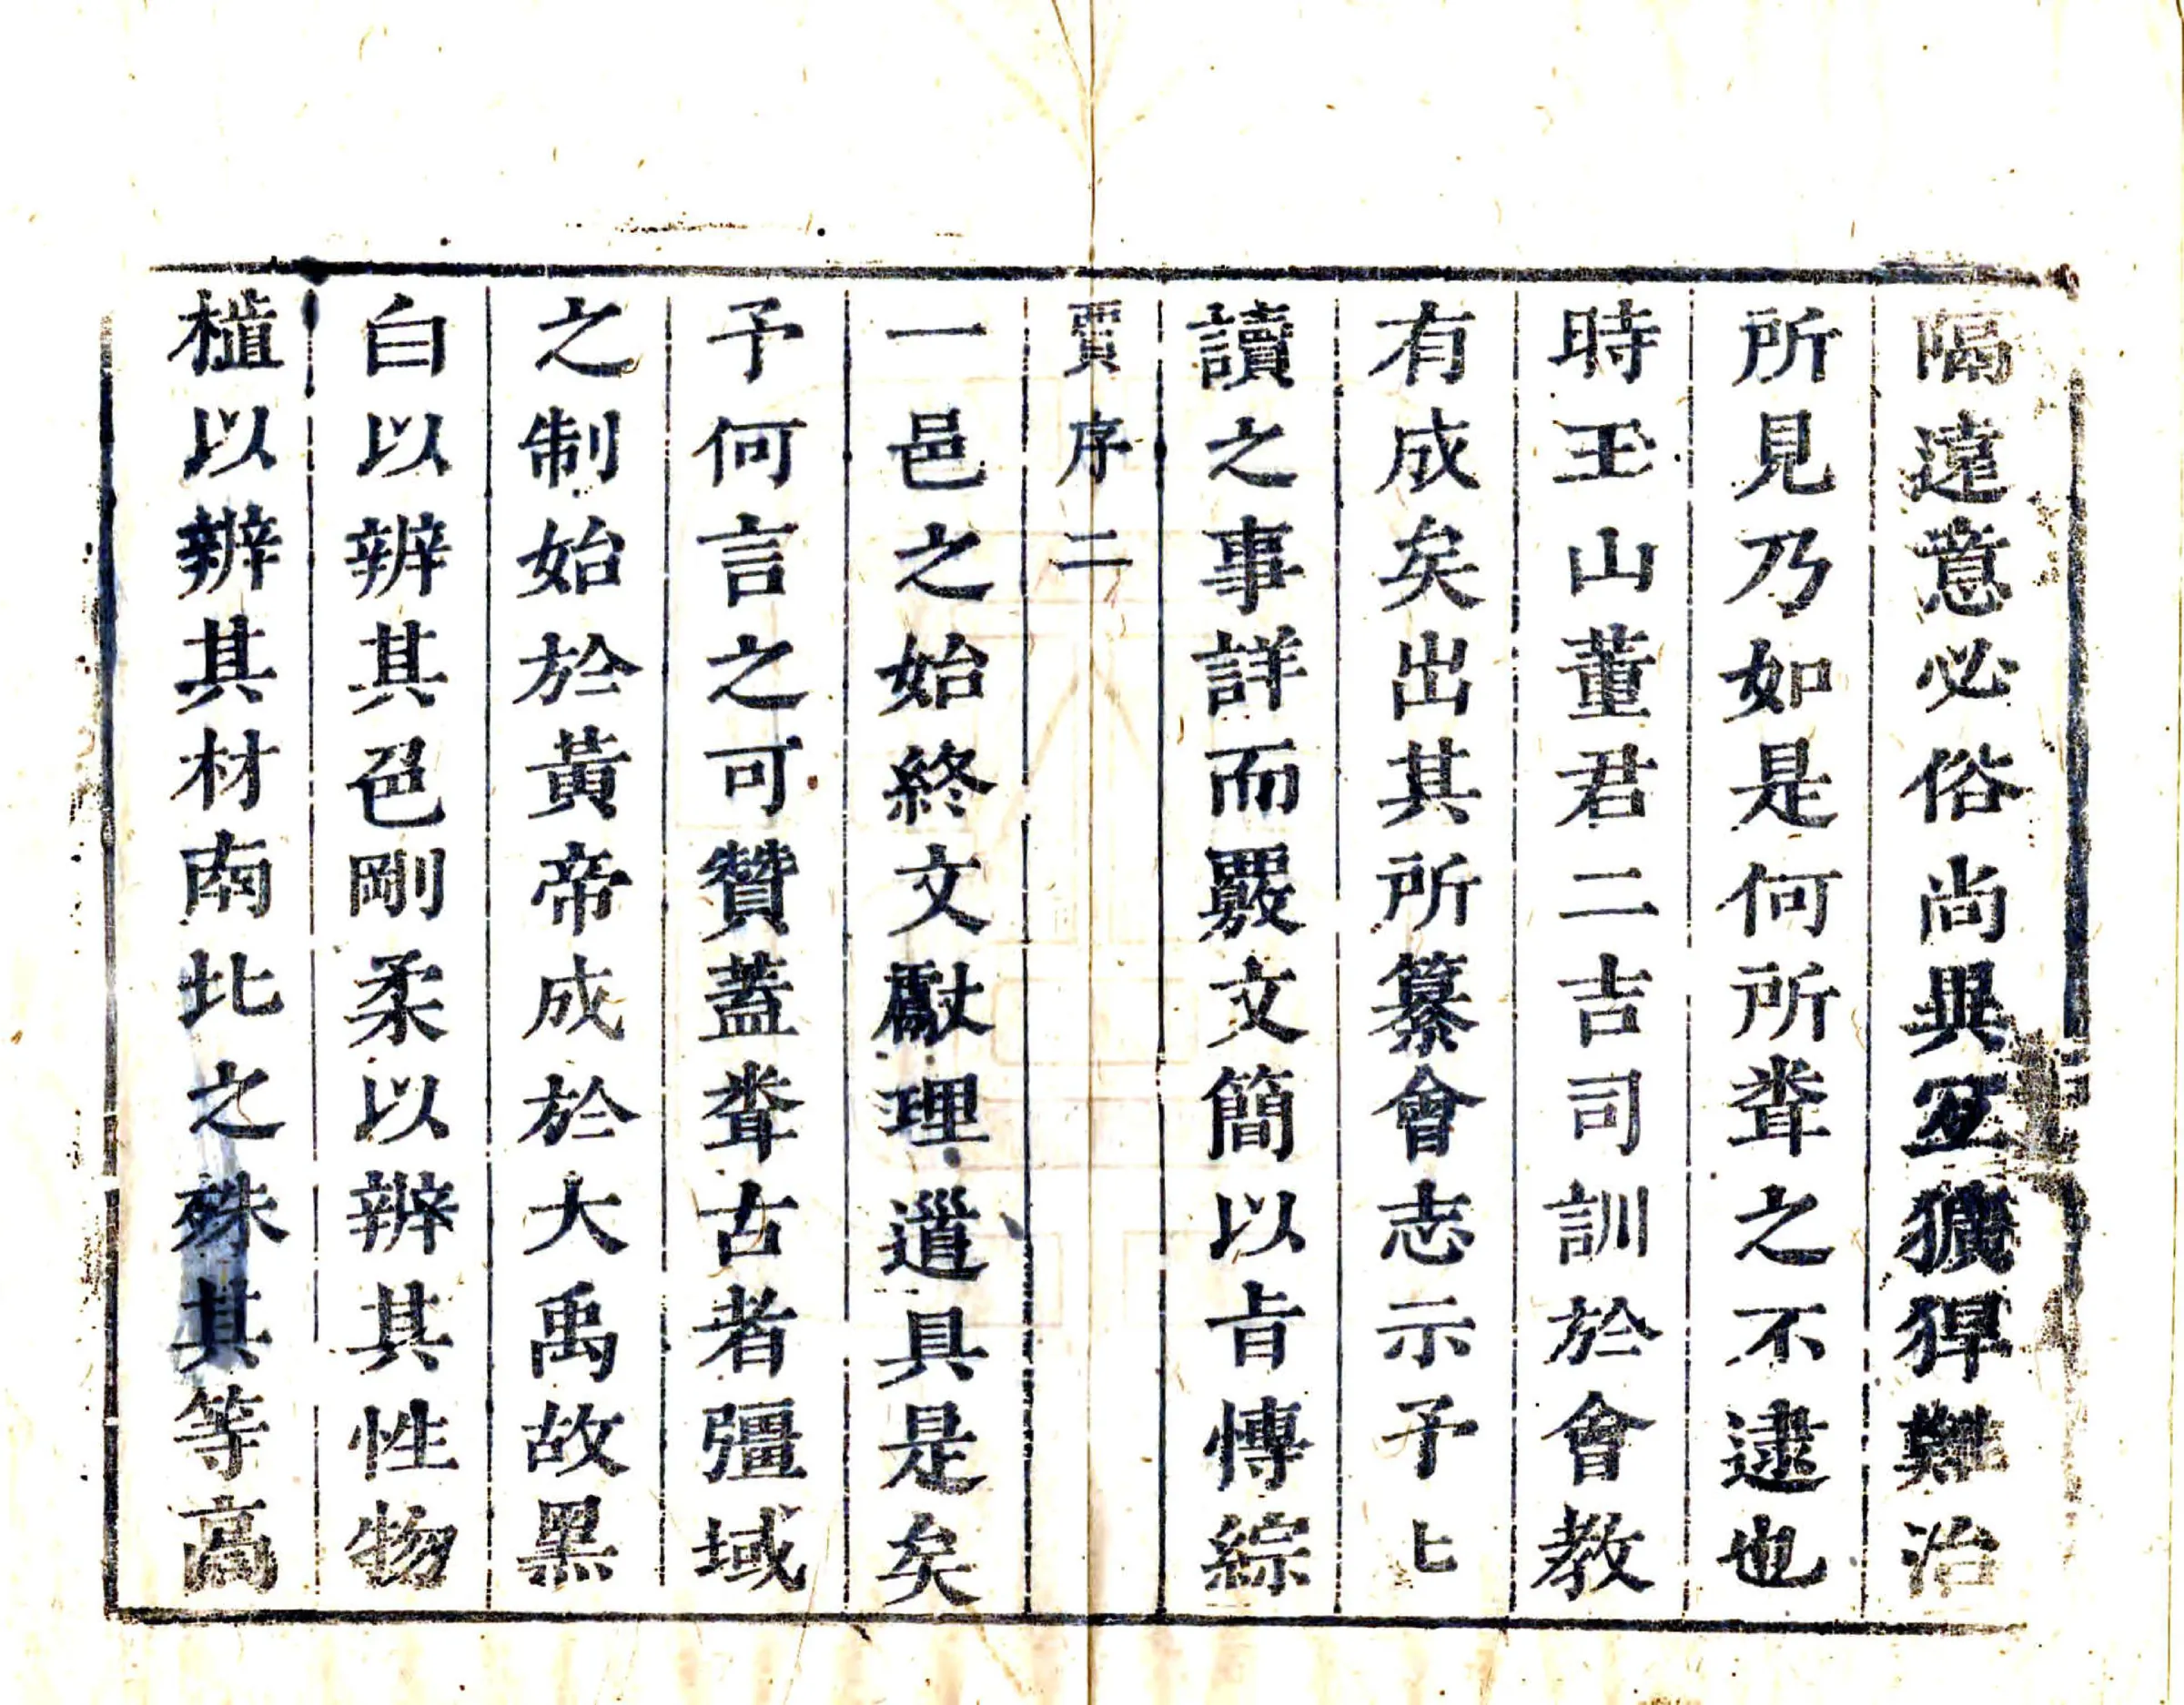 隔遠意必俗尚異宜獷猂難治
所見乃如是何所聋之不逮也
時玉山董君二吉司訓於會教
有成矣出其所纂會志示予匕
讀之事詳而覈文簡以㫖慱綜
賈序 二
一邑之始終文獻理道具是矣
予何言之可贊蓋聋古者彊域
之制始於黃帝成於大禹故黑
白以辨其色剛柔以辨其性物
植以辨其材南北之殊其等高